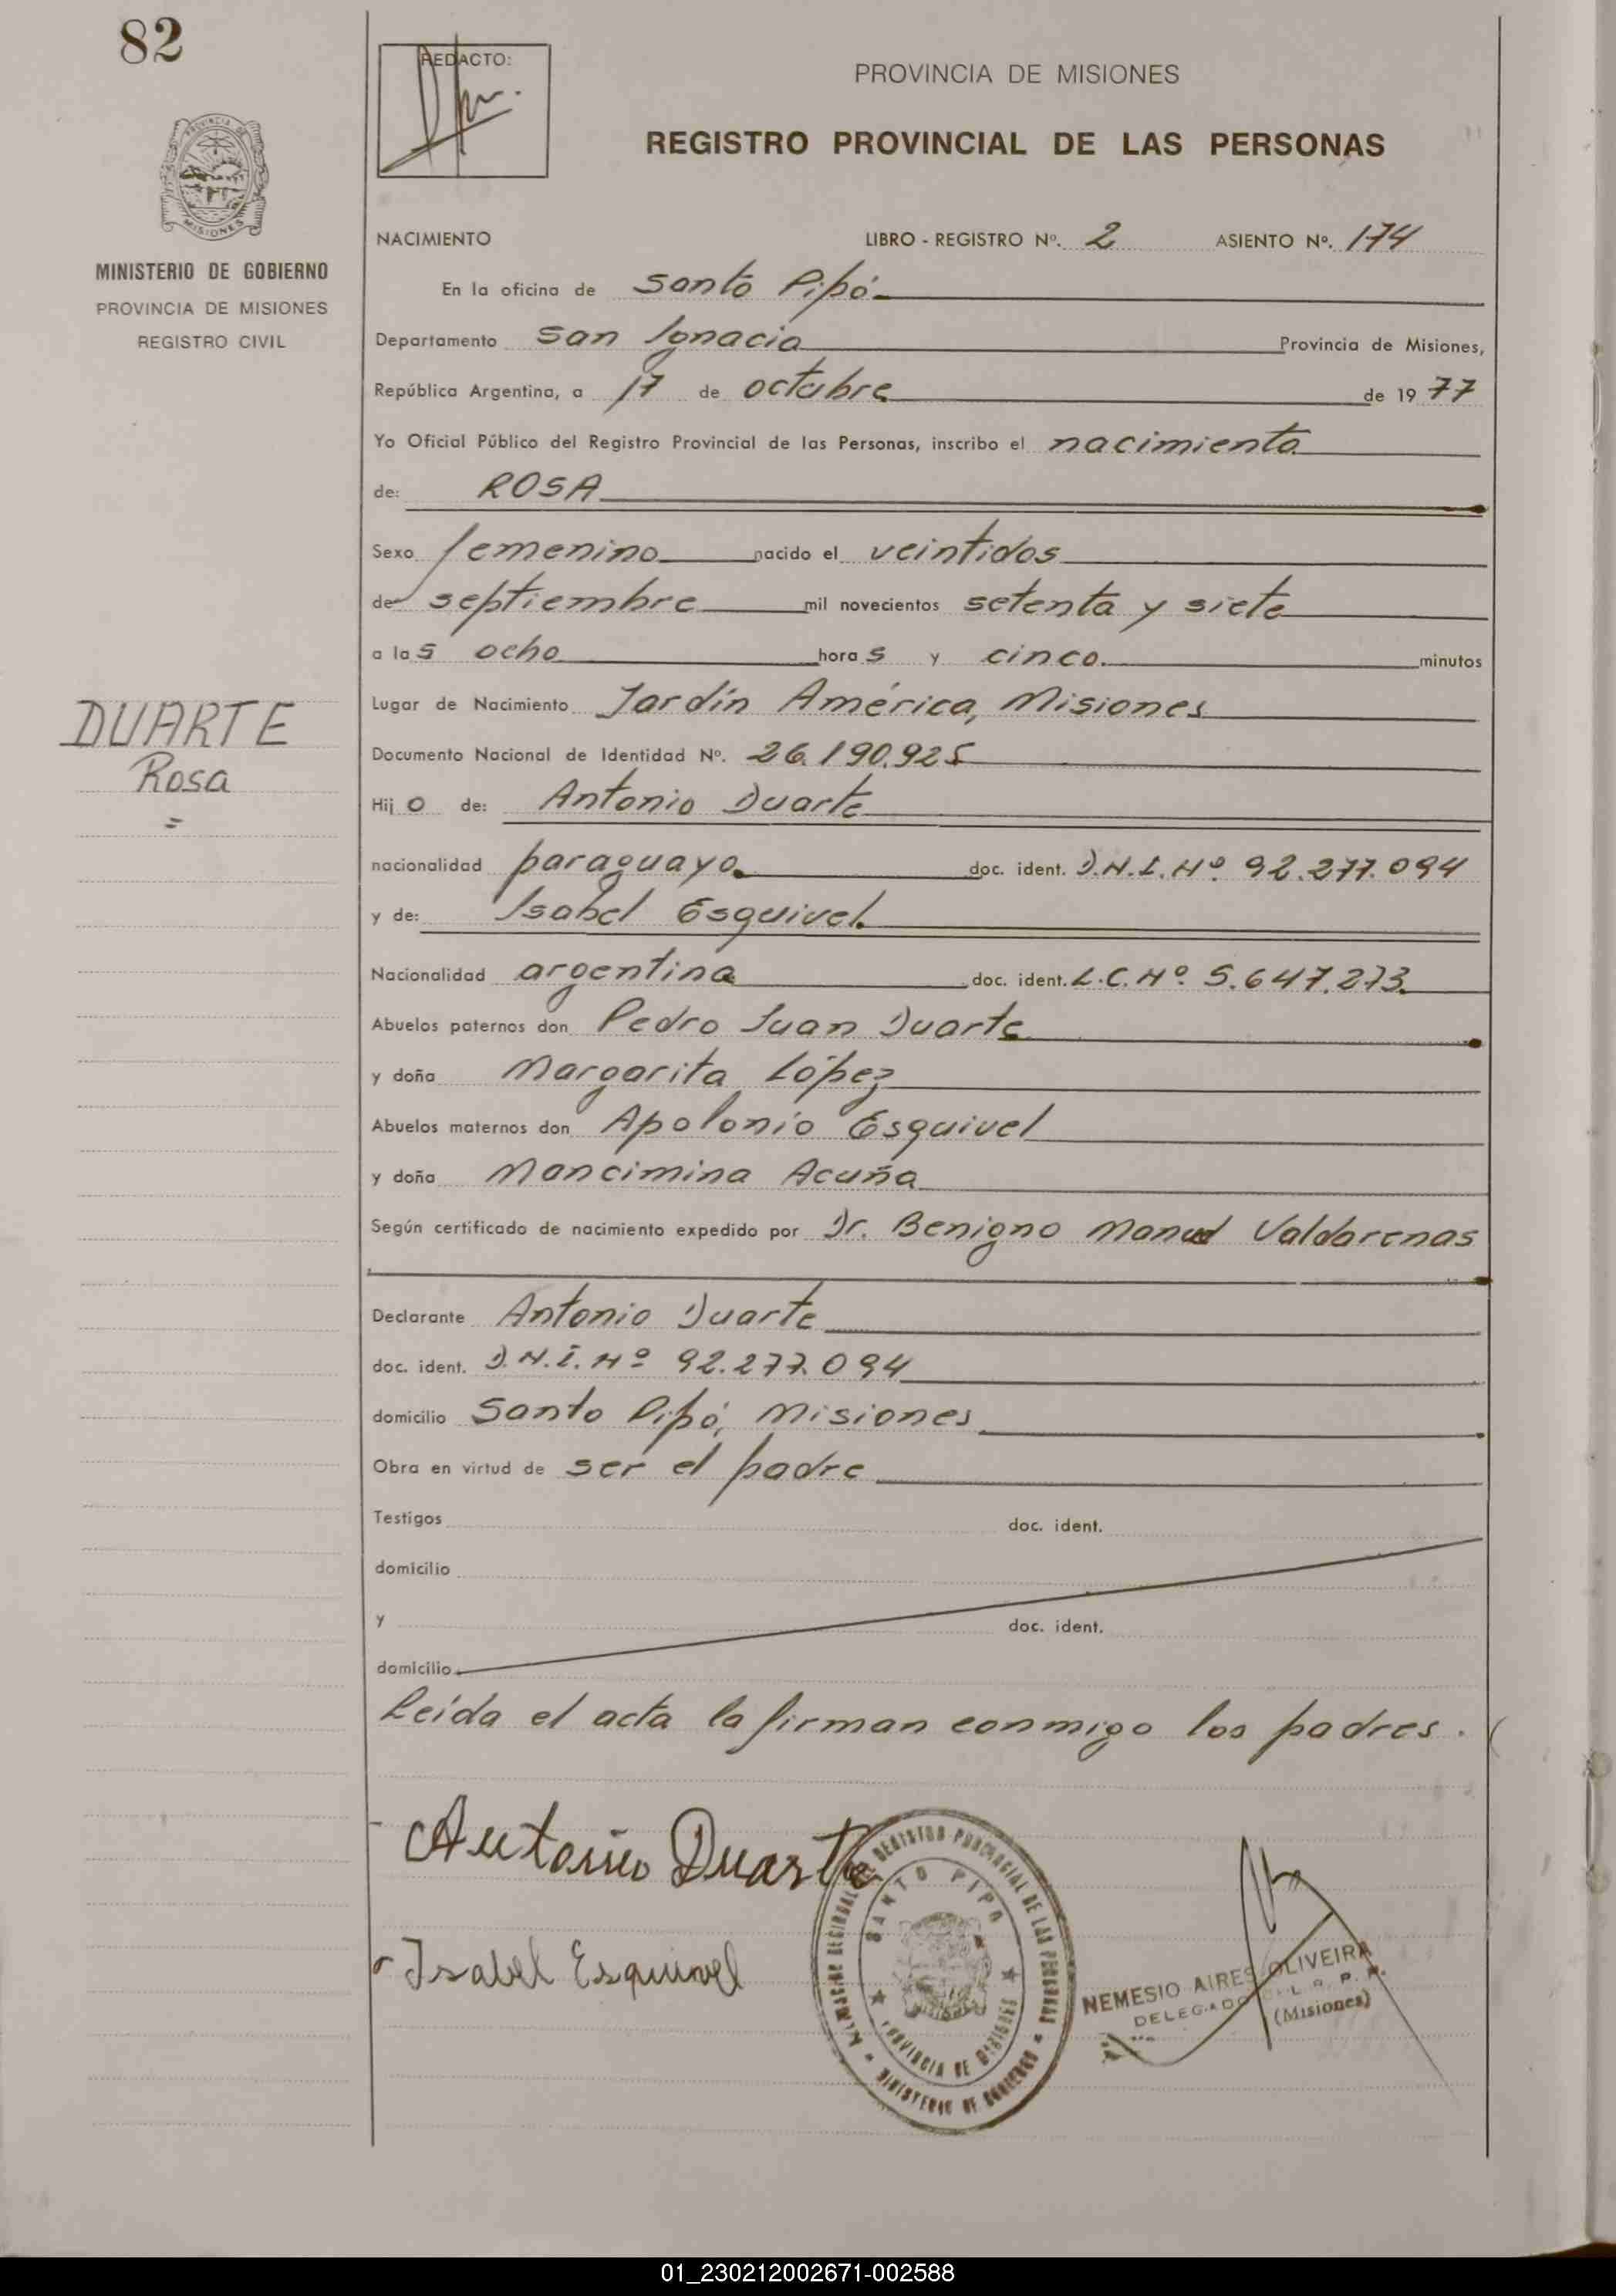 82
REDACTO:
PROVINCIA DE MISIONES
REGISTRO PROVINCIAL DE LAS PERSONAS
PROVINCIA DE
MISIONES
MINISTERIO DE GOBIERNO
PROVINCIA DE MISIONES
REGISTRO CIVIL
NACIMIENTO LIBRO - REGISTRO Nº. 2 ASIENTO Nº. 174
En la oficina de Santo Pipó
Departamento San Ignacio Provincia de Misiones,
República Argentina, a 17 de octubre de 1977
Yo Oficial Público del Registro Provincial de las Personas, inscribo el nacimiento
de: ROSA
Sexo femenino nacido el veintidos
de septiembre mil novecientos setenta y siete
a las ocho horas y cinco minutos
Lugar de Nacimiento Jardín América, Misiones
DUARTE
Rosa
=
Documento Nacional de Identidad Nº. 26.190.925
Hijo de: Antonio Duarte
nacionalidad paraguayo doc. ident. D.N.I. Nº 92.277.094
y de: Isabel Esquivel
Nacionalidad argentina doc. ident. L.C. Nº 5.647.273
Abuelos paternos don Pedro Juan Duarte
y doña Margarita López
Abuelos maternos don Apolonio Esquivel
y doña Mancimina Acuña
Según certificado de nacimiento expedido por Dr. Benigno Manuel Valdarenas
Declarante Antonio Duarte
doc. ident. D.N.I. Nº 92.277.094
domicilio Santo Pipó, Misiones
Obra en virtud de ser el padre
Testigos doc. ident.
domicilio
y doc. ident.
domicilio
Leída el acta la firman conmigo los padres.
Antonio Duarte
Isabel Esquivel
REGISTRO PROVINCIAL DE LAS PERSONAS
SANTO PIPO
PROVINCIA DE MISIONES
MINISTERIO DE GOBIERNO
NEMESIO AIRES OLIVEIRA
DELEGADO
(Misiones)
01_230212002671-002588